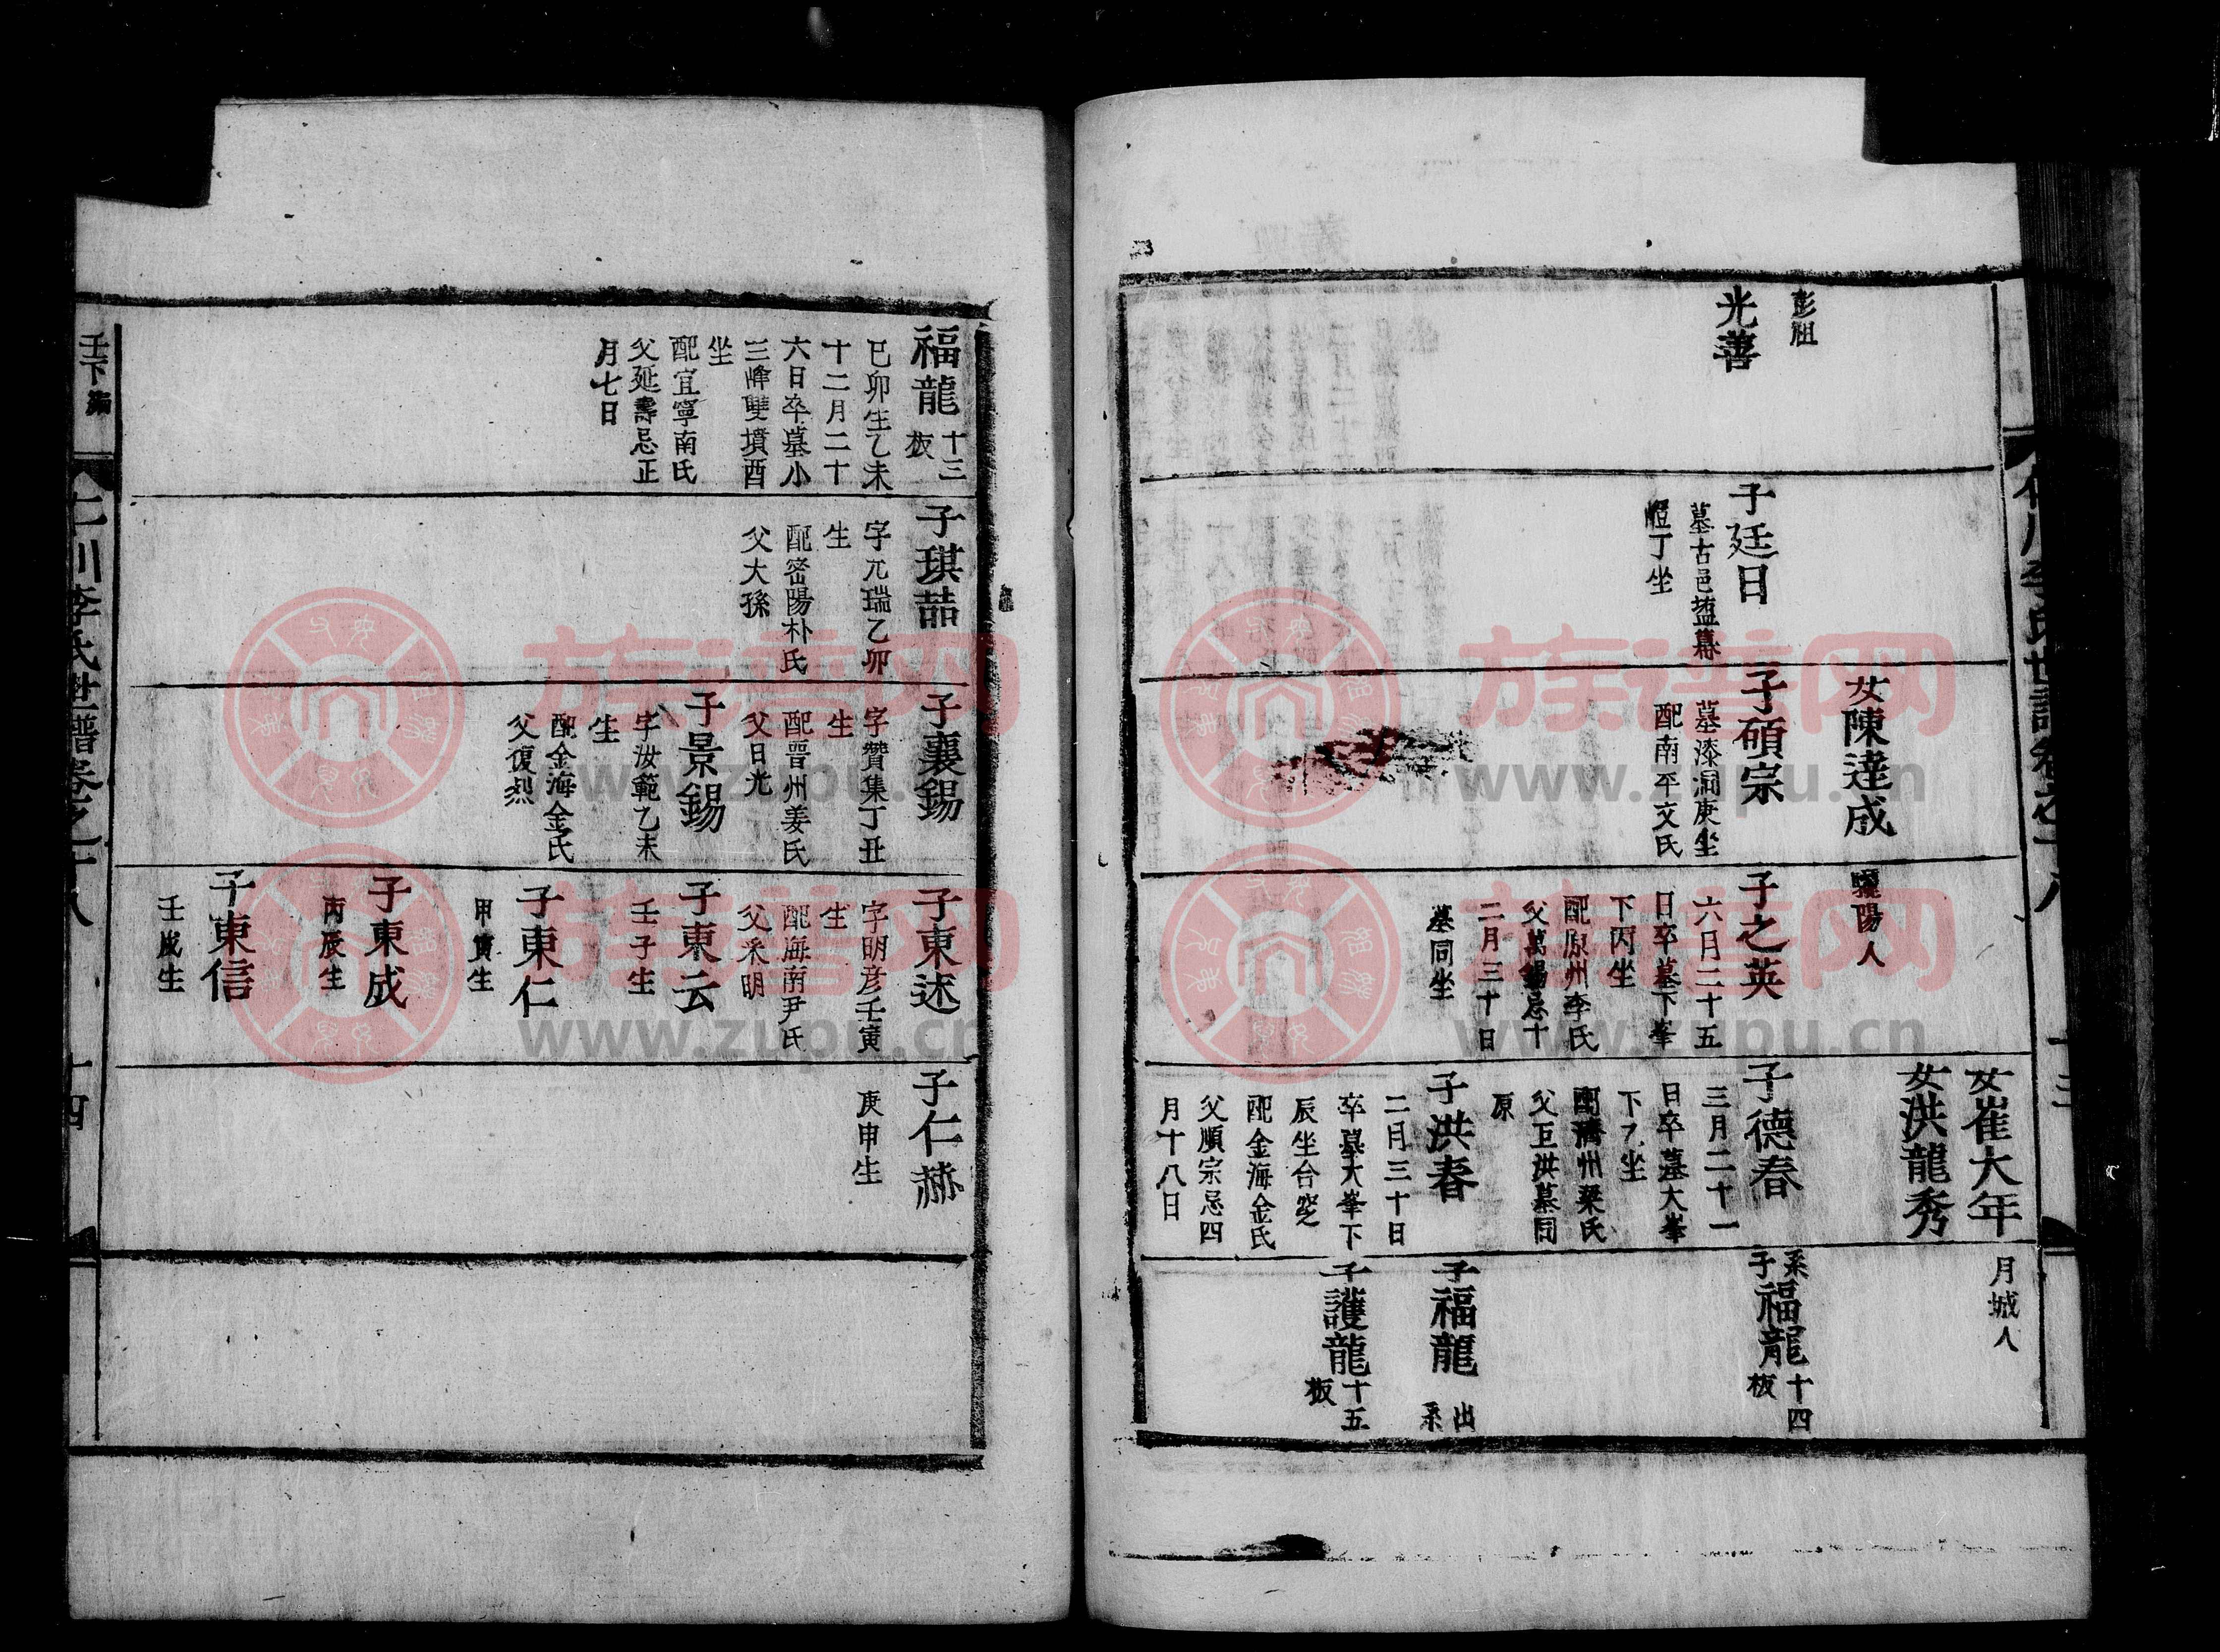 彭祖
光善
子廷日
墓古邑
丁坐
女陳達成
子碩宗
墓漆洞庚坐
配南平文氏
陽人
子之英
六月二十五
日卒墓下峯
下丙坐
配原州李氏
父萬錫忌十
二月三十日
墓同坐
女崔大年
女洪龍秀
子德春
三月二十一
日卒墓大峯
下乙坐
配濟州梁氏
父巨洪墓同
原
子洪春
二月三十日
卒墓大峯下
辰坐合窆
配金海金氏
父順宗忌四
月十八日
月城人
系子福龍
十四板
子福龍
出系
子護龍
十五板
仁川李氏世譜卷之十八
十三
福龍
十三板
己卯生乙未
十二月二十
六日卒墓小
三峰雙墳酉
坐
配宜寧南氏
父延壽忌正
月七日
子琪喆
字兀瑞乙卯
生
配密陽朴氏
父大孫
子襄錫
字贊集丁丑
生
配晋州姜氏
父日光
子景錫
字汝範乙未
生
配金海金氏
父復烈
子東述
字明彦壬寅
生
配海南尹氏
父采明
子東云
壬子生
子東仁
甲寅生
子東成
丙辰生
子東信
壬戌生
子仁赫
庚申生
壬下編
仁川李氏世譜卷之十八
十四
族谱网
www.zupu.cn
族谱网
www.zupu.cn
族谱网
www.zupu.cn
族谱网
www.zupu.cn